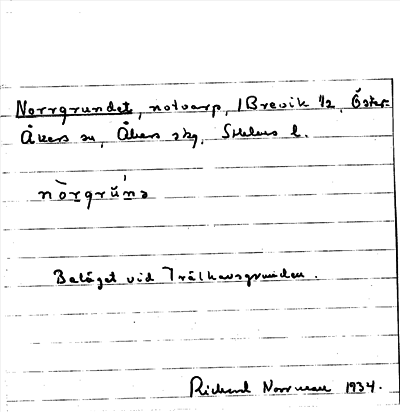 Norrgrundet, notvarp, /Brevik ½, Öster-
Åkers sn, Åkers skg, Sthlms l.
nòrgrŭ́nə
Beläget vid Trälhavsgrunden.
Richard Norrman 1934.